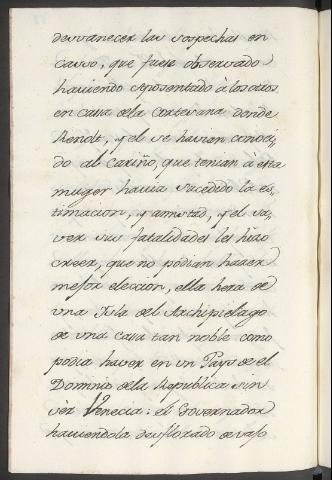 desvanecer las sospechas en
casso, que fuese observado
haviendo reposentado à los otros
en cassa de la Cortesana donde
Rendt, y el se havian conoci-
do al Cariño, que tenian à esta
muger havia sucedido la es-
timacion, y amistad, y el sa-
ver sus fatalidades les hizo
creer, que no podian hacer
mejor eleccion, ella hera de
una Isla del Archipielago
de una Cassa tan noble como
podia haver en un Pays de el
Dominio de la Republica sin
sèr Venecia: el Governador
haviendola desflorado de vajo